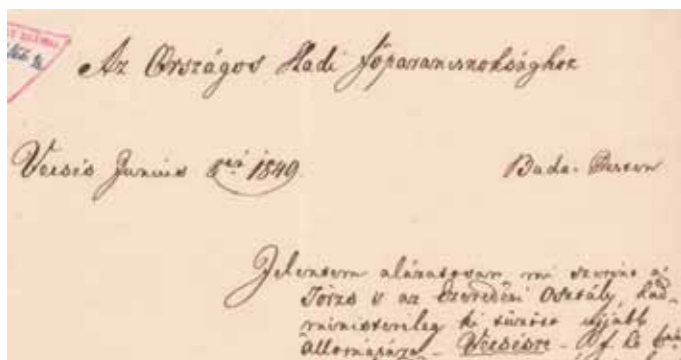 Az Országos Hadi főparancsnoksághoz
Vecsés Junius 1849 Buda-Pesten
Jelentem alázatosan, mi szerint a'
Törzs s az Ezeredesi Osztály, had-
ministerileg ki tűzött ujjabb
állomására - Vecsésre - f. hó